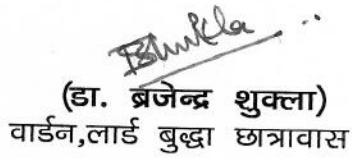 BShukla
(डा. ब्रजेन्द्र शुक्ला)
वार्डन,लार्ड बुद्धा छात्रावास